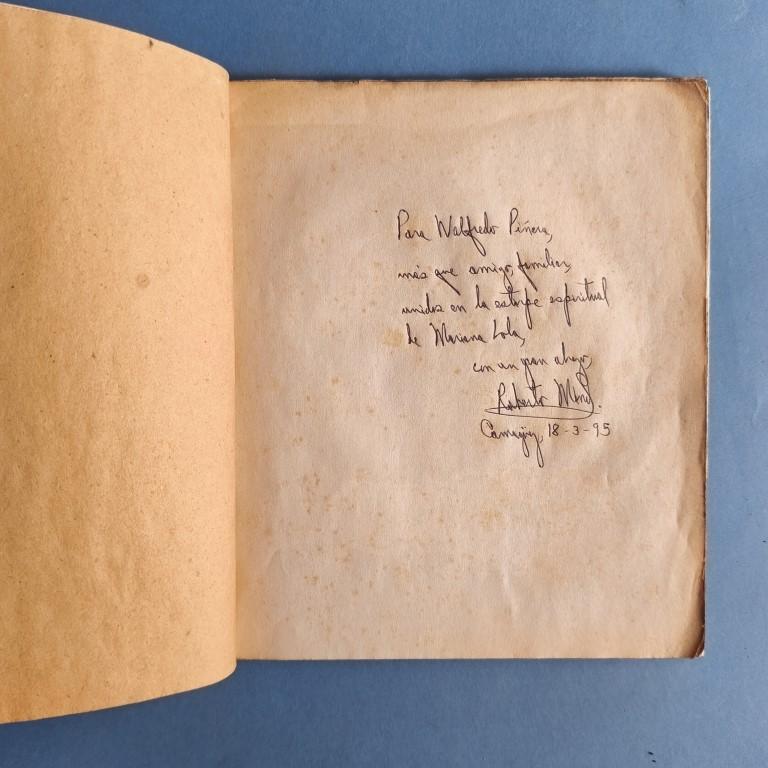 Para Walfredo Piñera,
más que amigo, familiar,
unidos en la estirpe espiritual
de Mariana Lola,
con un gran abrazo,
Roberto
Camagüey, 18-3-95